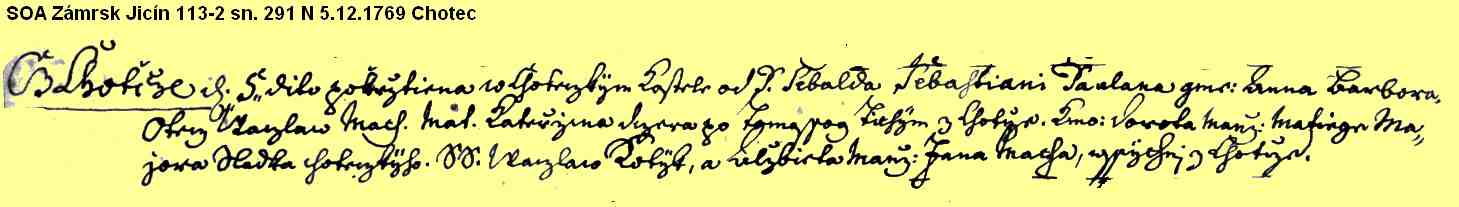 SOA Zámrsk Jicín 113-2 sn. 291 N 5.12.1769 Chotec
Z Chotcze d. 5. dito pokrztiena w Choteczkým Kostele od P. Tebalda Sebastiani Paulana gme: Anna Barbora,
Otecz Waczlaw Mach. Mat. Katerzina dczera po Tichým z Chotcze. Kmo: Dorota manz: Matiege Ma„
jora Sladka choteczkýho. SS. Waczlaw Kotyk, a Alzbieta manz: Jana Macha, wssychni z Chotcze.